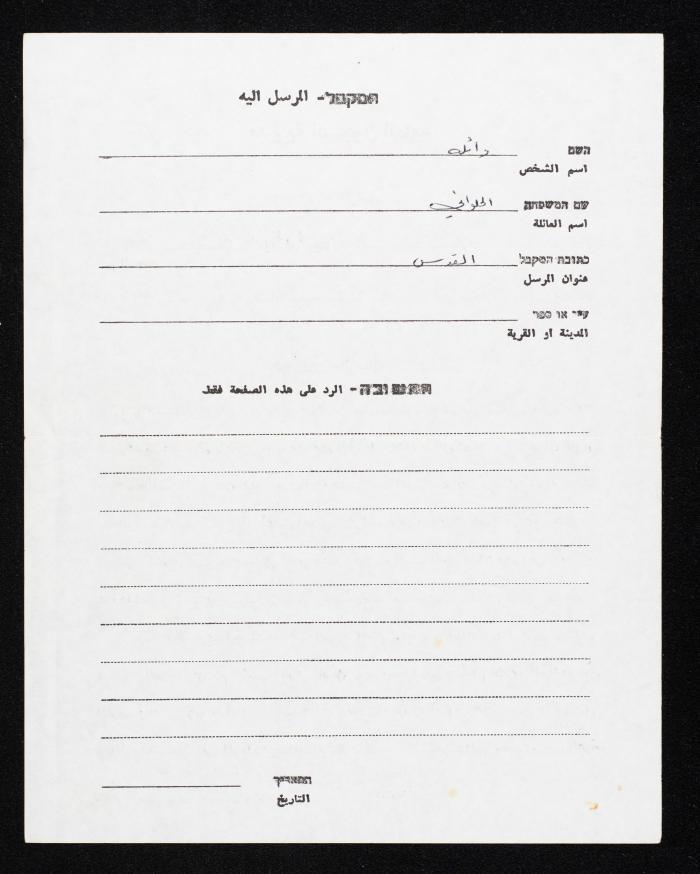 המקבל - المرسل اليه
השם وائل
اسم الشخص
שם המשפחה الحلواني
اسم العائلة
כתובת המקבל القدس
عنوان المرسل
עיר או כפר
المدينة او القرية
התשובה - الرد على هذه الصفحة فقط
התאריך
التاريخ